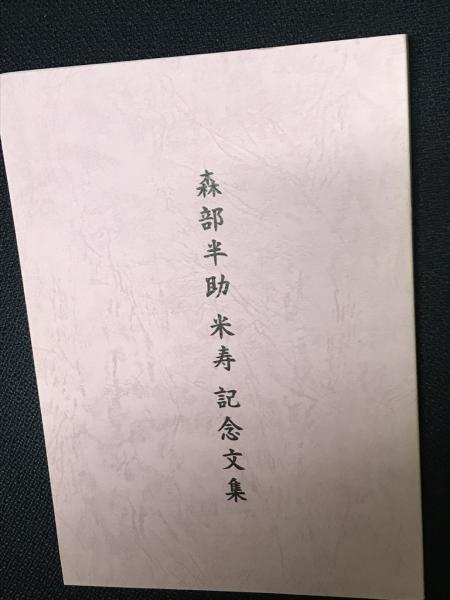 森部半助 米寿 記念文集